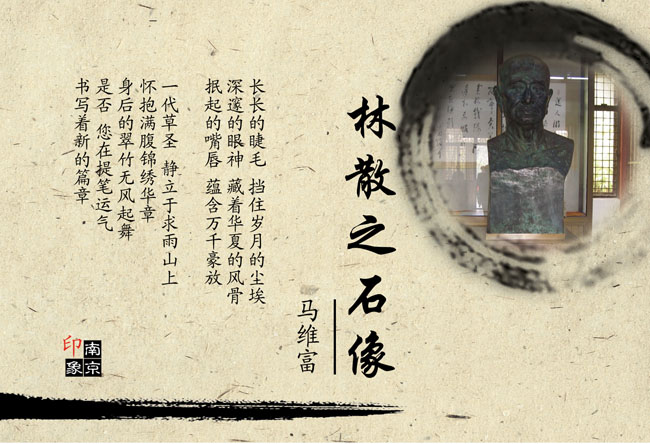 林散之石像
马维富
长长的睫毛 挡住岁月的尘埃
深邃的眼神 藏着华夏的风骨
抿起的嘴唇 蕴含万千豪放
一代草圣 静立于求雨山上
怀抱满腹锦绣华章
身后的翠竹无风起舞
是否 您在提笔运气
书写着新的篇章
南京
印象